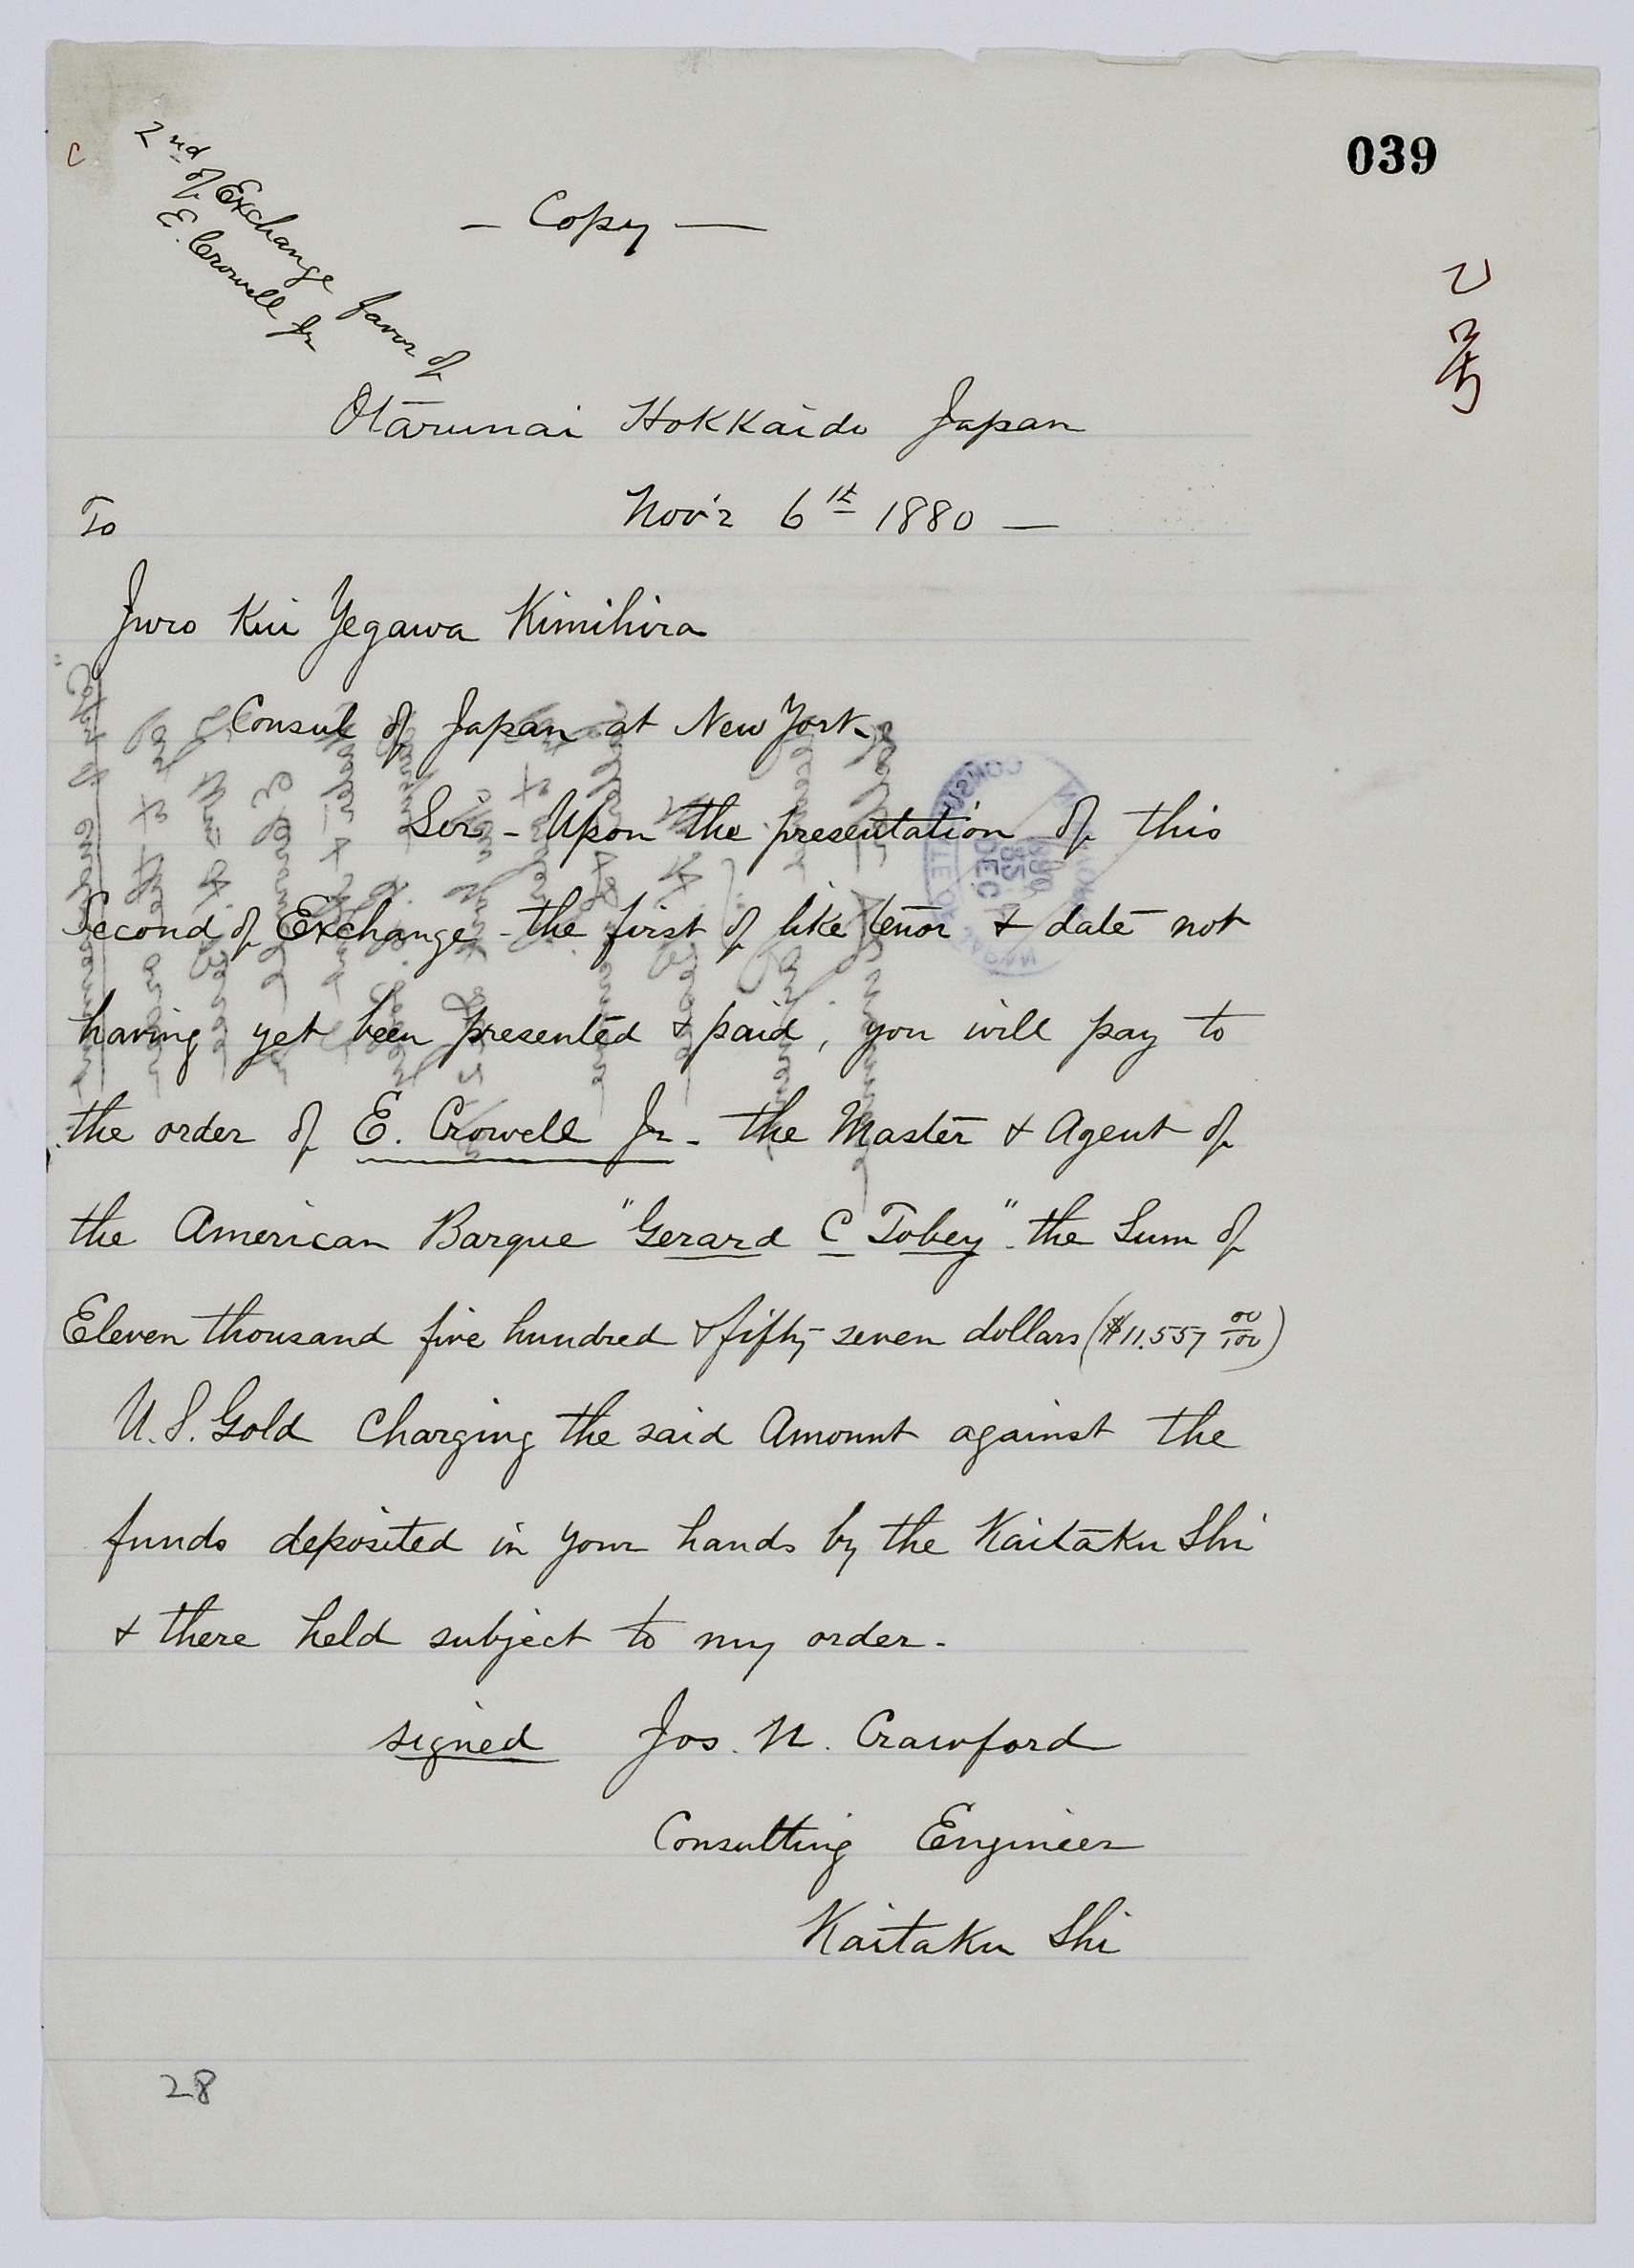 039
乙号
C
2nd of Exchange favor of
E. Crowell Jr
— Copy —
Otarunai Hokkaido Japan
Nov'r 6th 1880 —
To
Juro Kui Yegawa Kimihira
Consul of Japan at New York.
Sir - Upon the presentation of this
Second of Exchange - the first of like tenor & date not
having yet been presented & paid, you will pay to
the order of E. Crowell Jr - the Master & Agent of
the American Barque "Gerard C Tobey" - the Sum of
Eleven thousand five hundred & fifty-seven dollars ($11.557 00/100)
U.S. Gold Charging the said Amount against the
funds deposited in your hands by the Kaitaku Shi
& there held subject to my order -
signed Jos. N. Crawford
Consulting Engineer
Kaitaku Shi
28